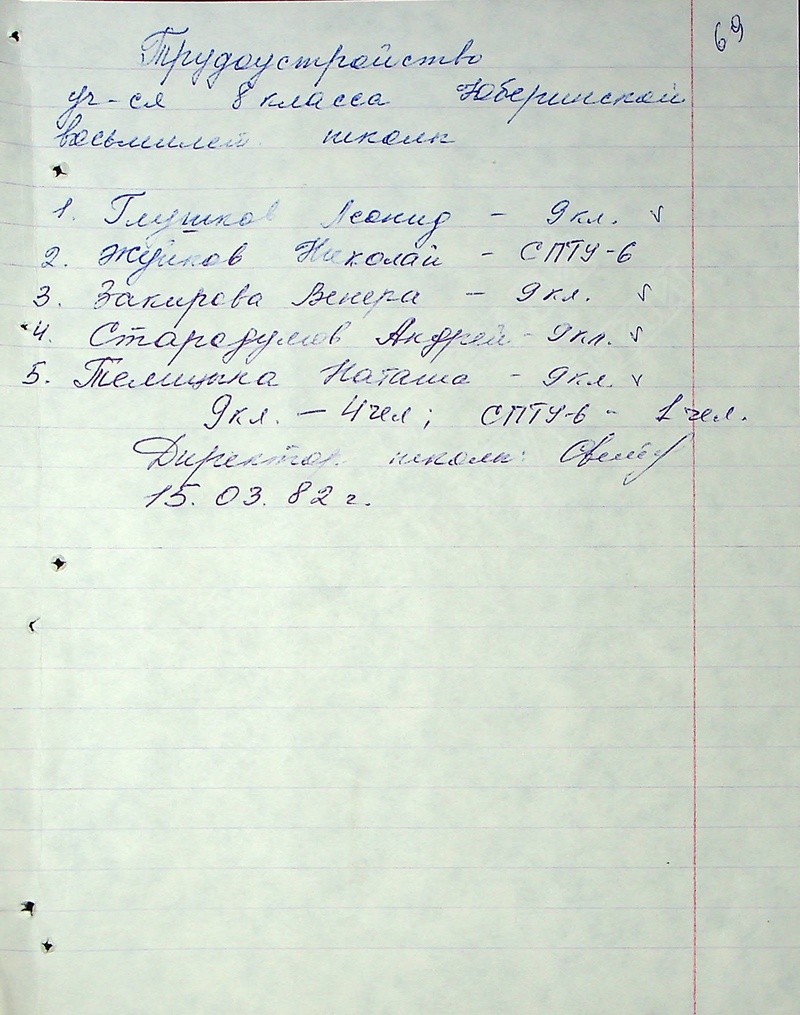 69
Трудоустройство
уч-ся 8 класса Юберинской
восьмилет. школы
1. Глушков Леонид - 9 кл. v
2. Жуйков Николай - СПТУ-6
3. Закирова Венера - 9 кл. v
4. Стародумов Андрей - 9 кл. v
5. Телицына Наташа - 9 кл. v
9 кл. - 4 чел; СПТУ-6 - 1 чел.
Директор школы:
15.03.82 г.